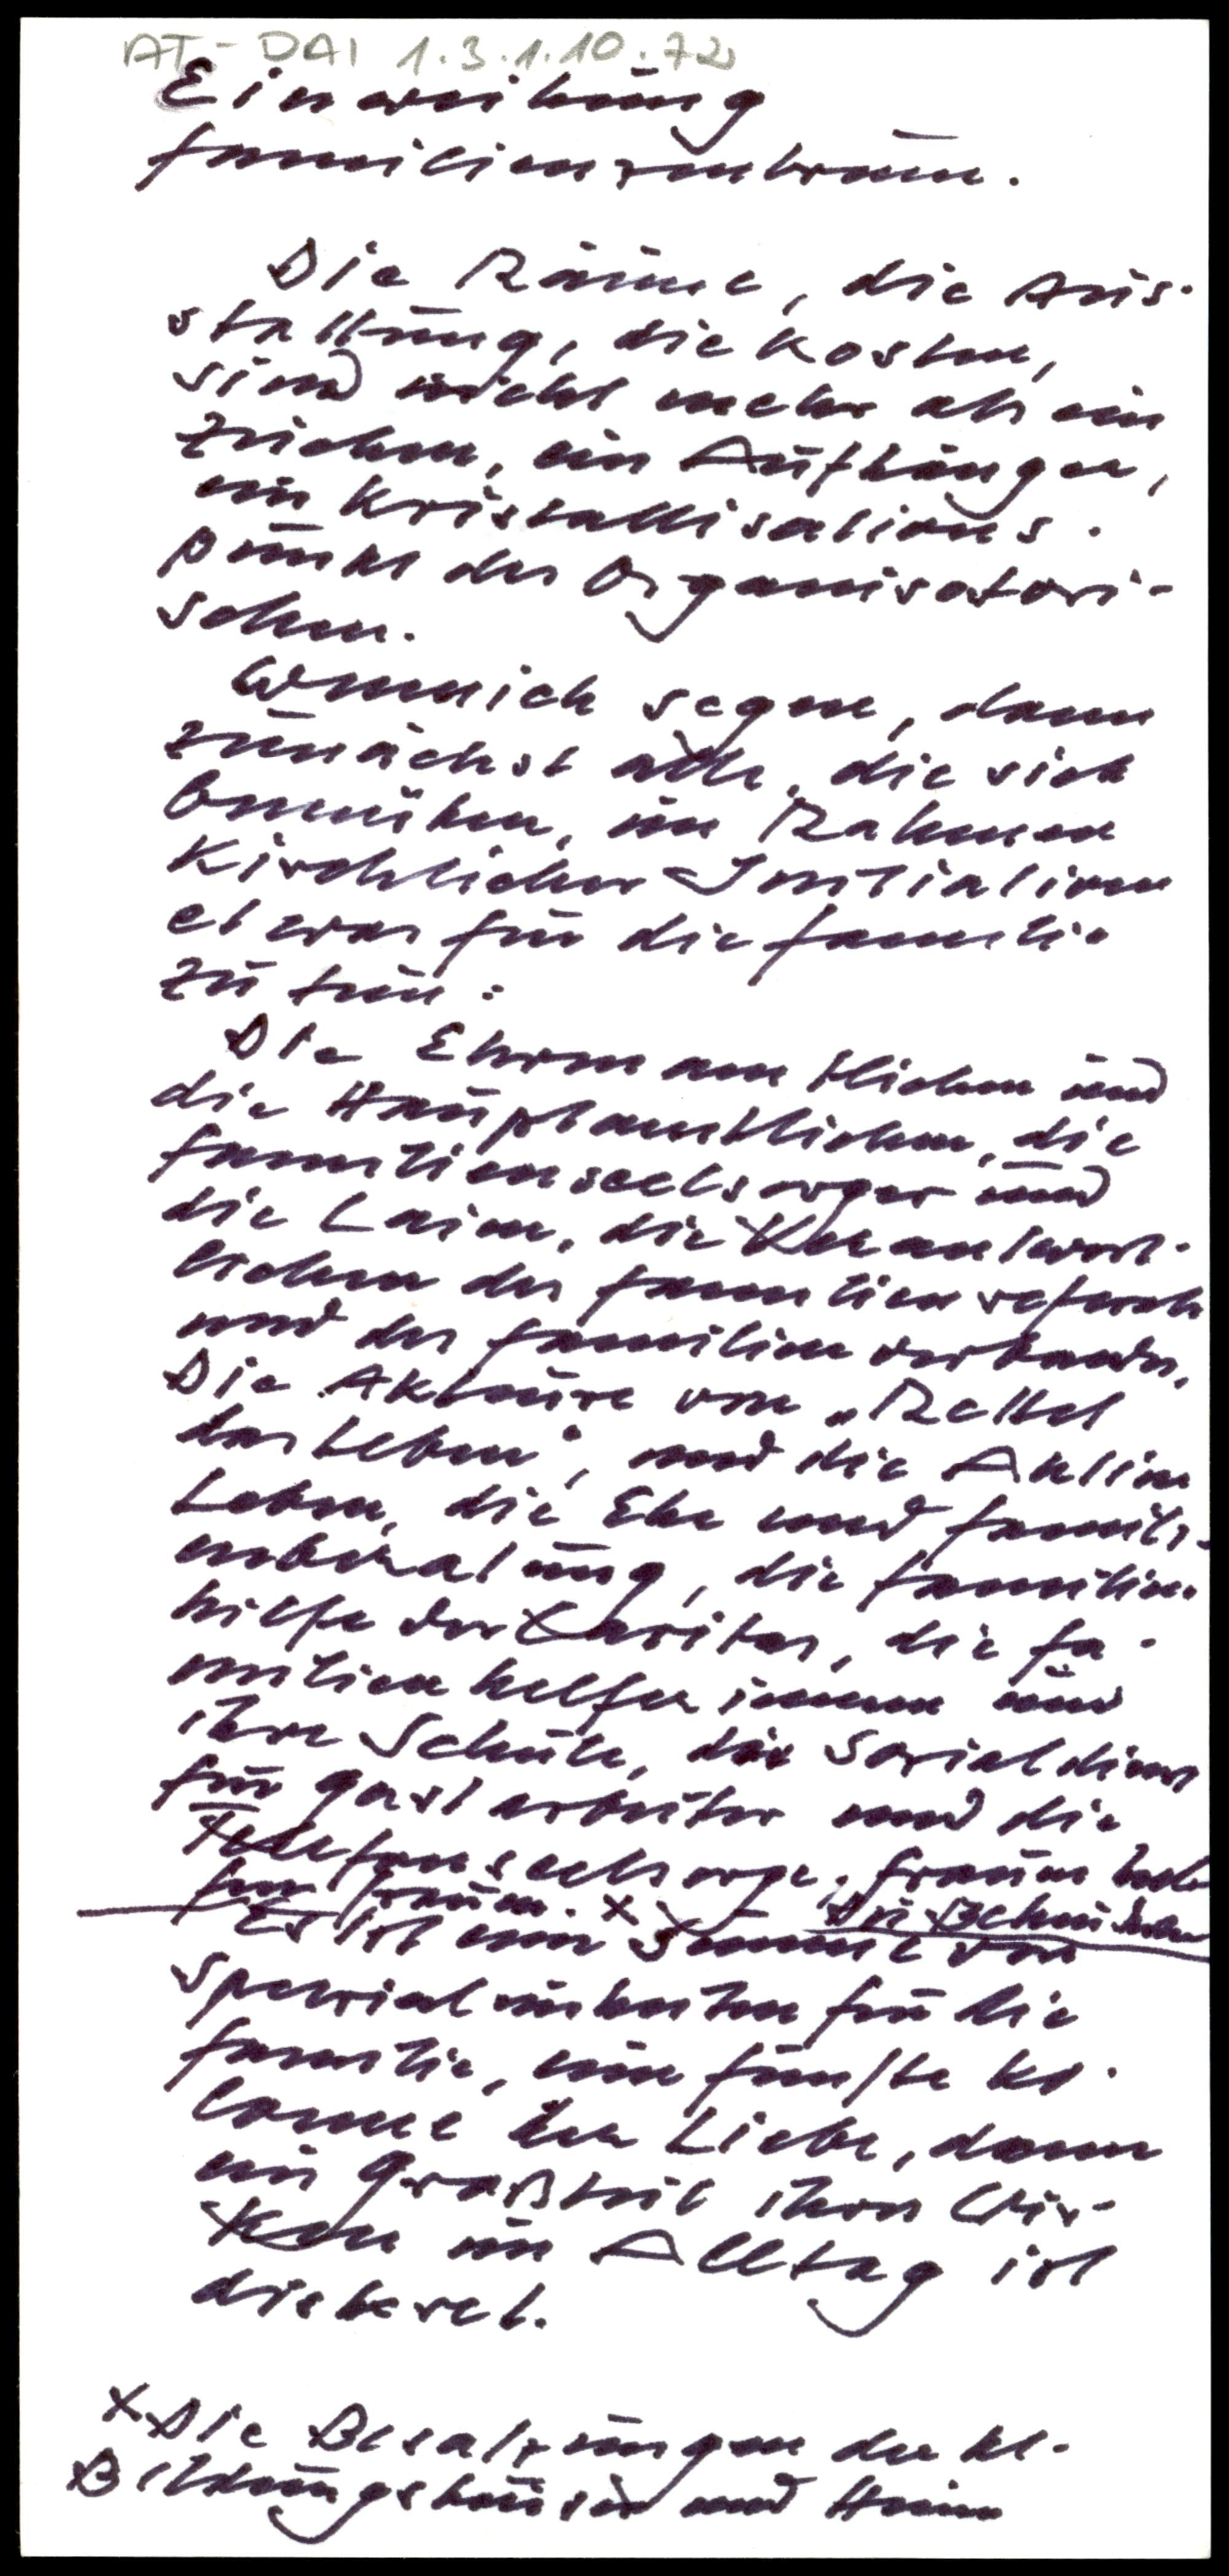 AT-DAI 1.3.1.10.72
Einweihung
Familienzentrum.
Die Räume, die Aus-
stattung, die Kosten,
sind nicht mehr als ein
Zeichen, ein Aufhänger,
ein Kristallisations-
punkt des Organisatori-
schen.
Wenn ich segne, dann
zunächst alle, die sich
bemühen, im Rahmen
kirchlicher Initiativen
etwas für die Familie
zu tun:
Die Ehrenamtlichen und
die Hauptamtlichen, die
Familienseelsorger und
die Laien, die Verantwort-
lichen des Familienreferats
und des Familienverbandes,
Die Akteure von "Rettet
das Leben", und die Aktion
Leben, die Ehe und Famili-
enberatung, die Familien-
hilfe der Caritas, die Fa-
milienhelferinnen und
ihre Schule, die Sozialdienst
für Gastarbeiter und die
Telefonseelsorge. Frauen
für Frauen. x Die Behinderten
Es ist eine Summe von
Spezialeinheiten für die
Familie, eine fünfte Ko-
lonne der Liebe, denn
ein Großteil ihres Wir-
ken im Alltag ist
diskret.
x Die Besatzungen der kl.
Bildungshäuser und Heime